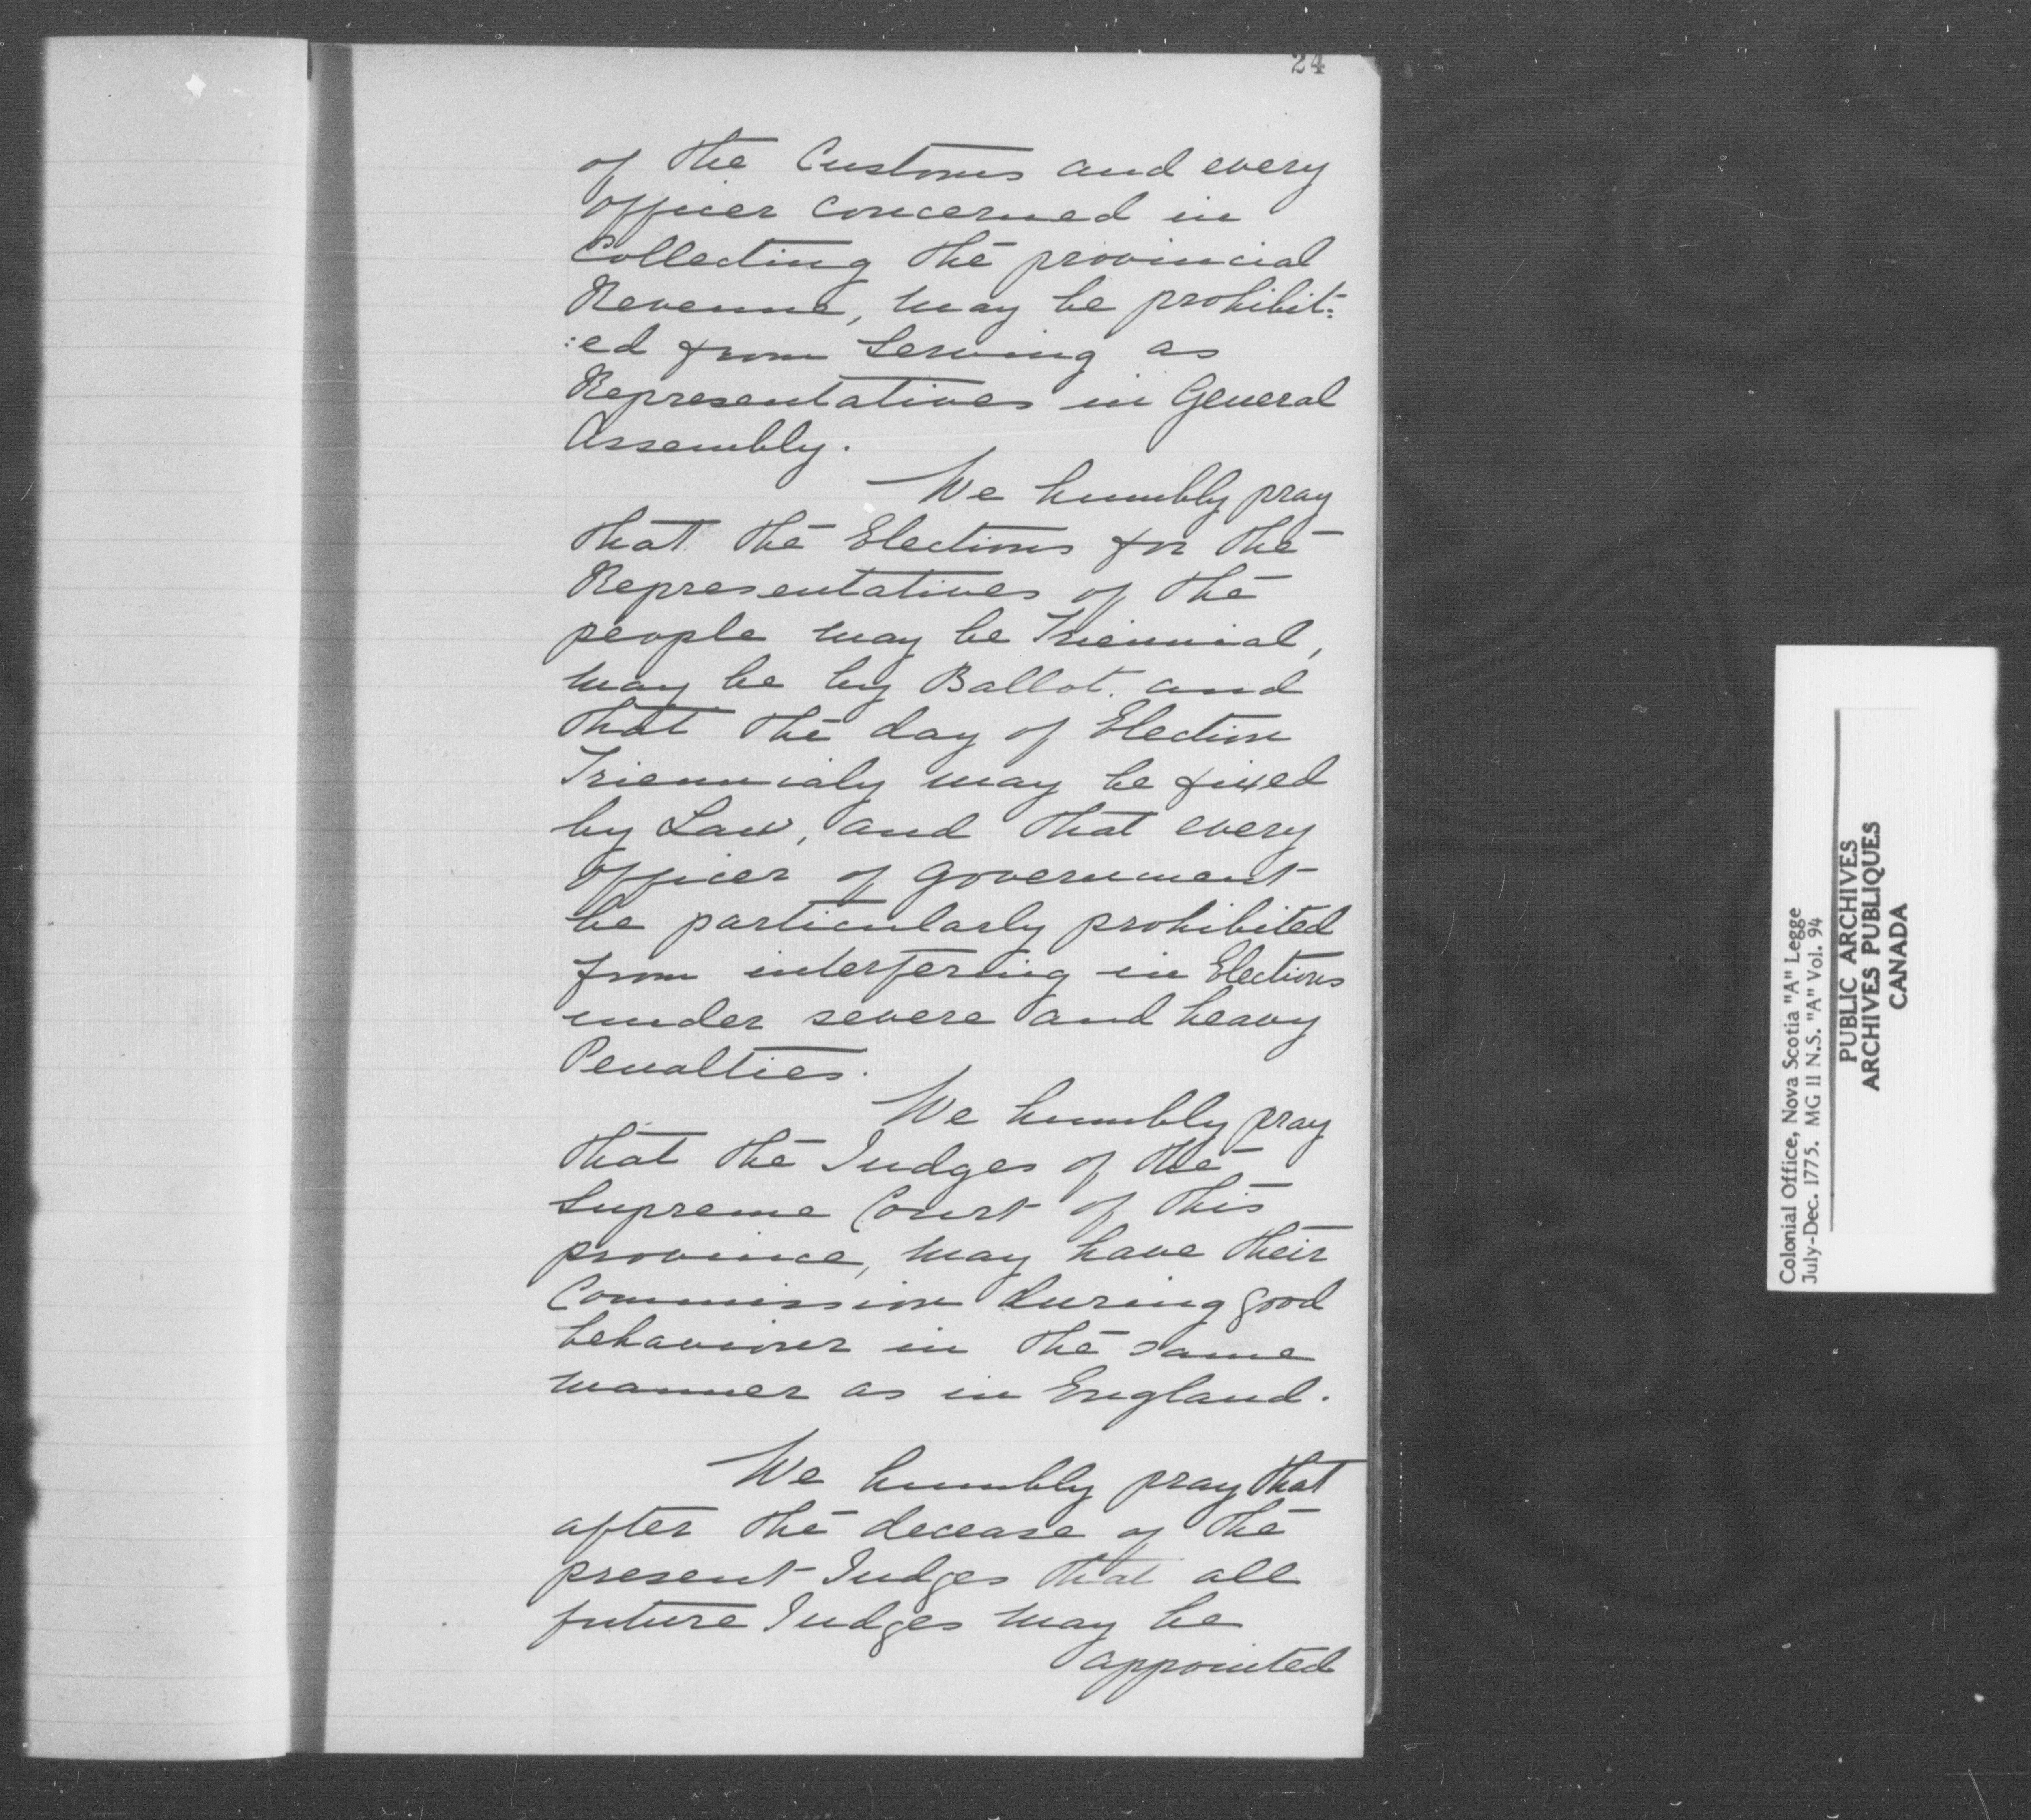 24
of the Customs and every
officer concerned in
Collecting the provincial
Revenue, may be prohibit:
:ed from Serving as
Representatives in General
Assembly.
We humbly pray
that the Elections for the
Representatives of the
people may be Triennial,
may be by Ballot. and
that the day of Election
Triennialy may be fixed
by Law, and that every
officer of Government
be particularly prohibited
from interfering in Elections
under severe and heavy
Penalties.
We humbly pray
that the Judges of the
Supreme Court of this
province, may have their
Commission during good
behaviour in the same
manner as in England.
We humbly pray that
after the decease of the
present Judges that all
future Judges may be
appointed
Colonial Office, Nova Scotia "A" Legge
July-Dec. 1775. MG 11 N.S. "A" Vol. 94
PUBLIC ARCHIVES
ARCHIVES PUBLIQUES
CANADA